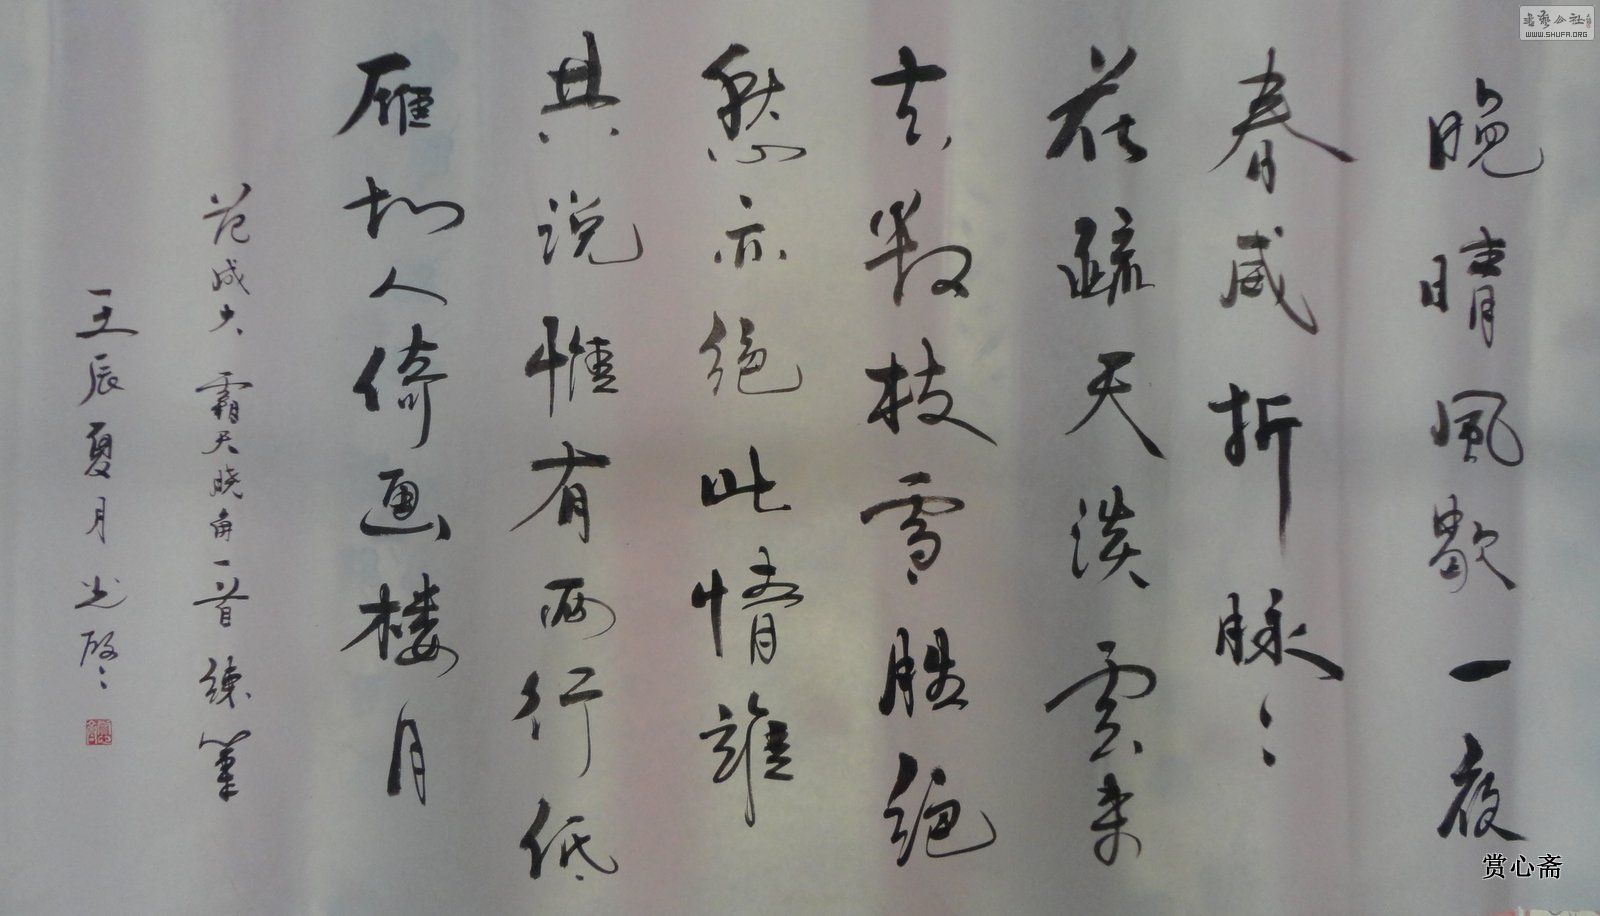 晚晴風歇一夜
春威折脉〻
花疏天淡雲来
去数枝雪勝絶
愁亦絶此情誰
共说惟有两行低
雁知人倚画楼月
范成大 霜天晓角一首 练笔
壬辰夏月
書藝公社
WWW.SHUFA.ORG
赏心斋